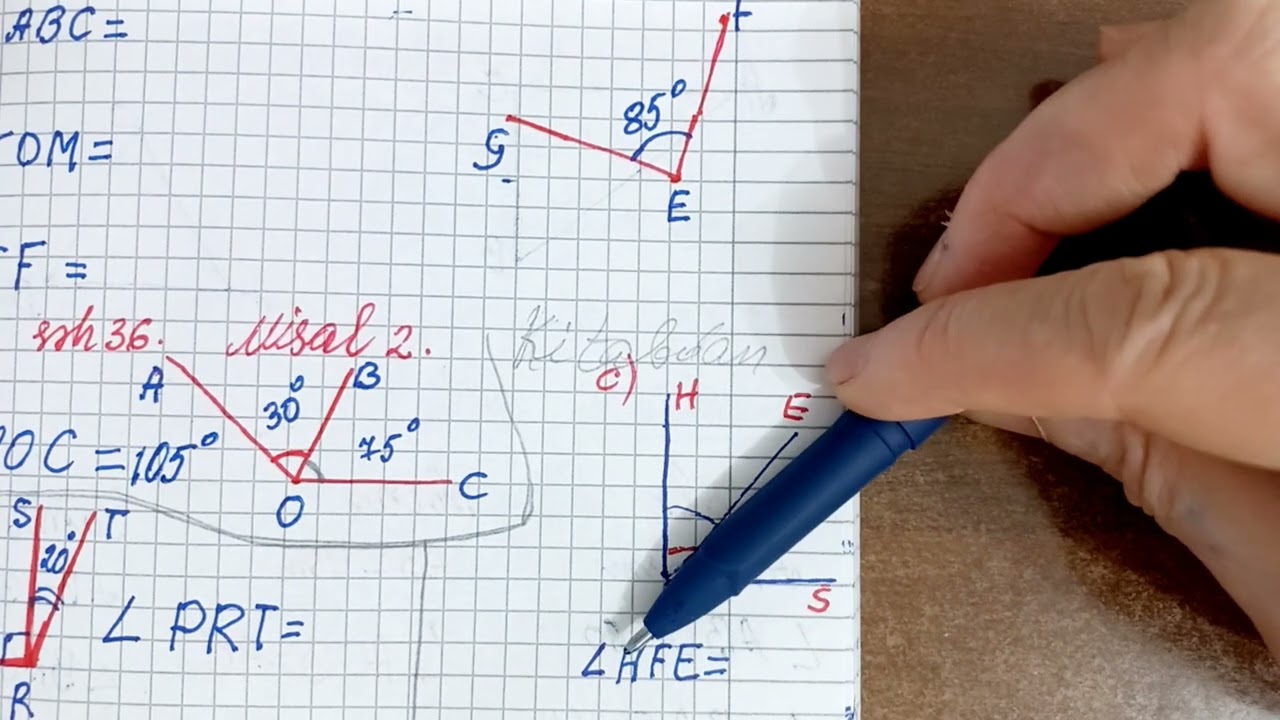 ABC =
F
85°
G
OM =
E
F =
səh 36. Misal 2.
Kitabdan
c)
H
A
B
30°
E
OC = 105°
75°
C
O
S T
20°
S
∠ PRT =
∠HFE =
R